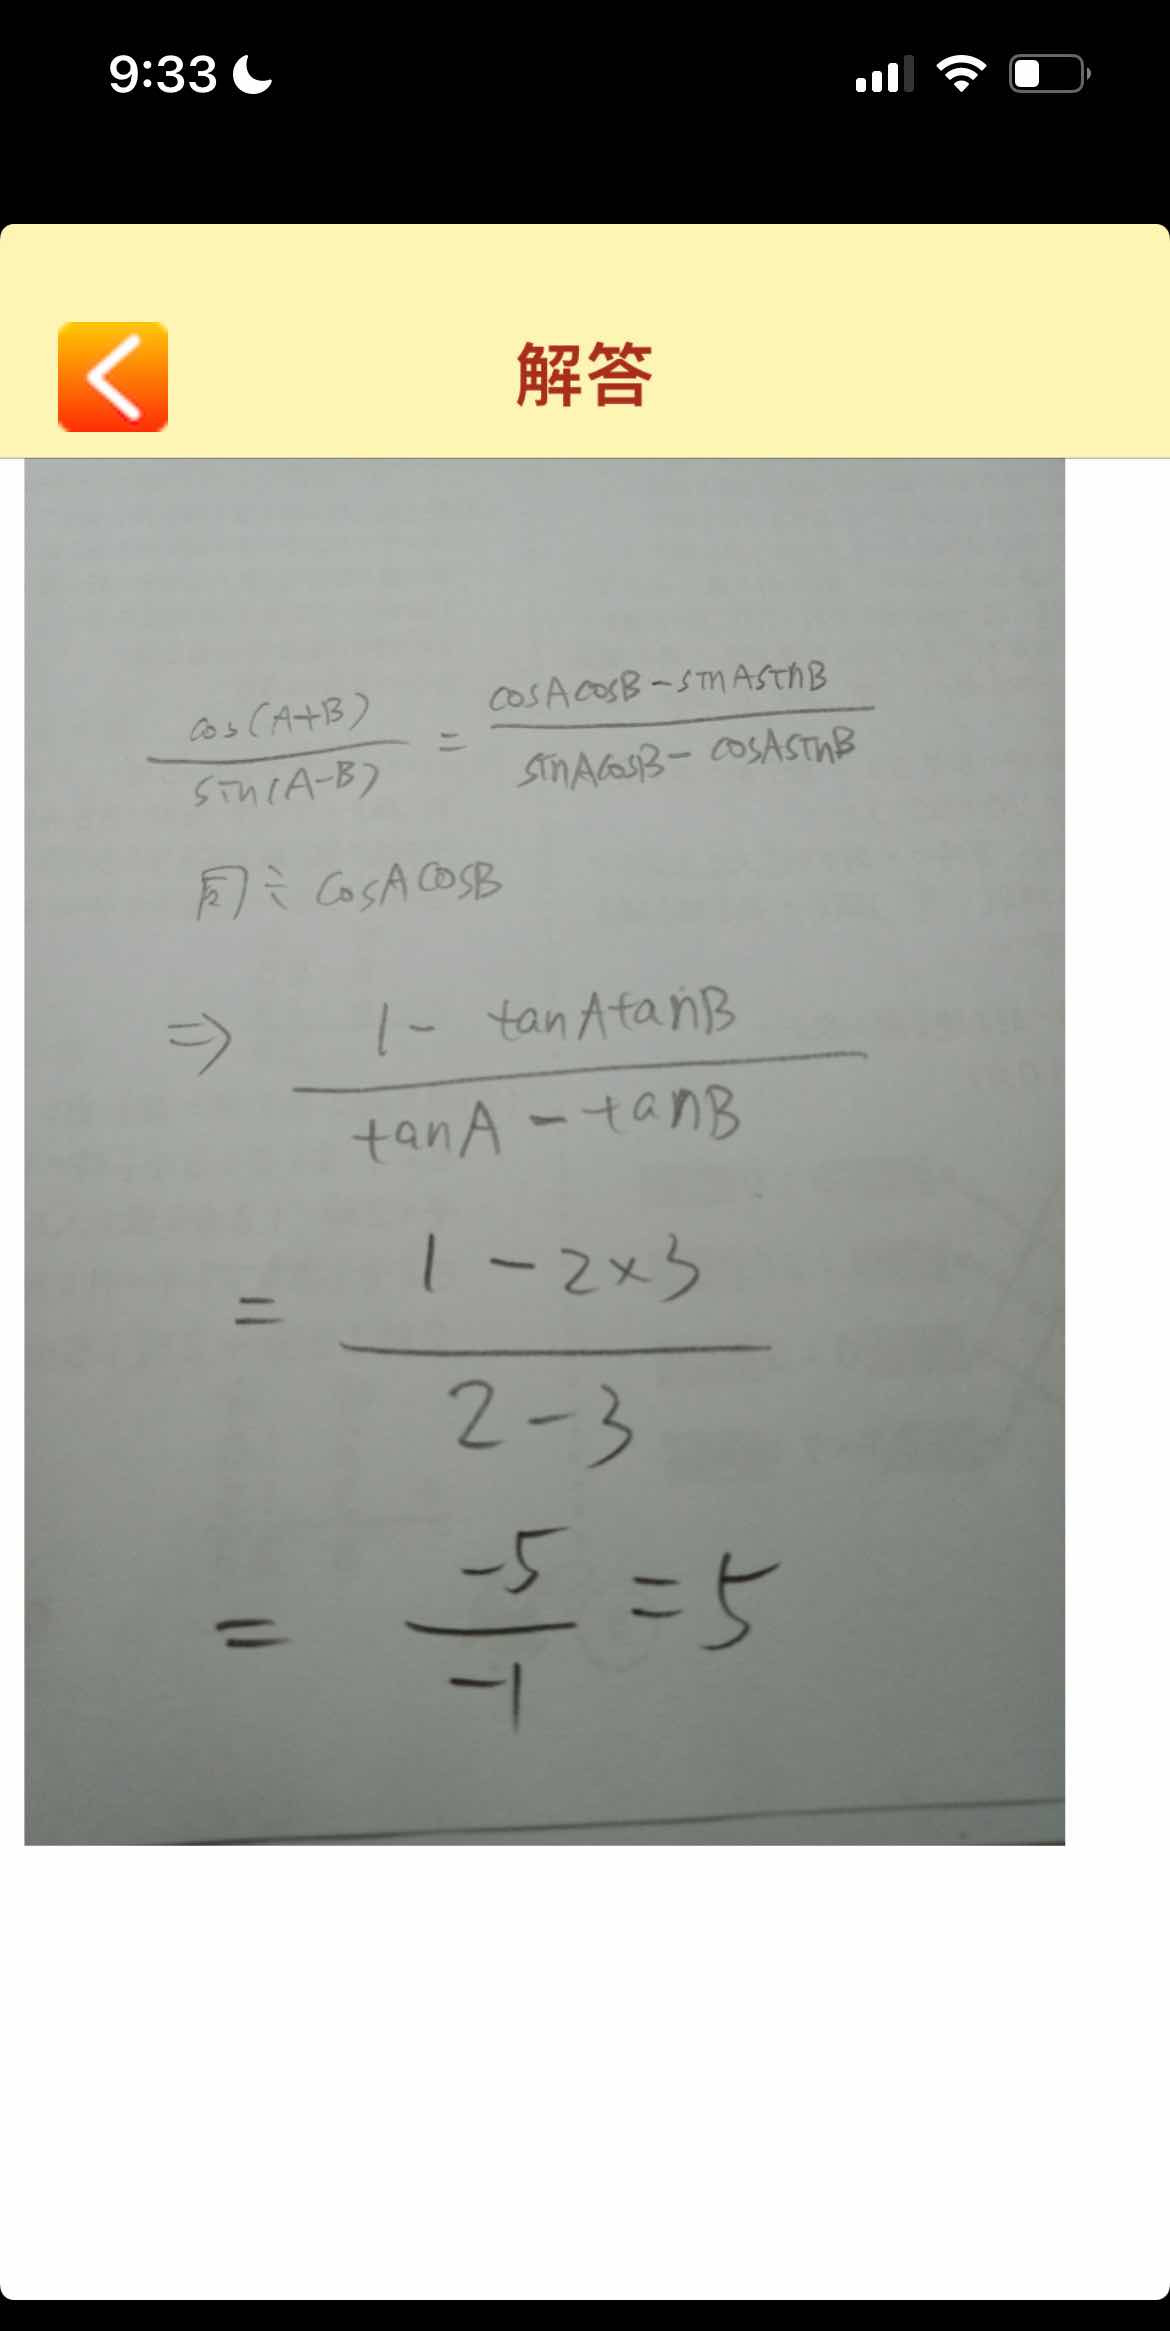 9:33
解答
cos(A+B) / sin(A-B) = cosAcosB-sinAsinB / sinAcosB-cosAsinB
同÷cosAcosB
⇒ 1-tanAtanB / tanA-tanB
= 1-2×3 / 2-3
= -5 / -1 = 5